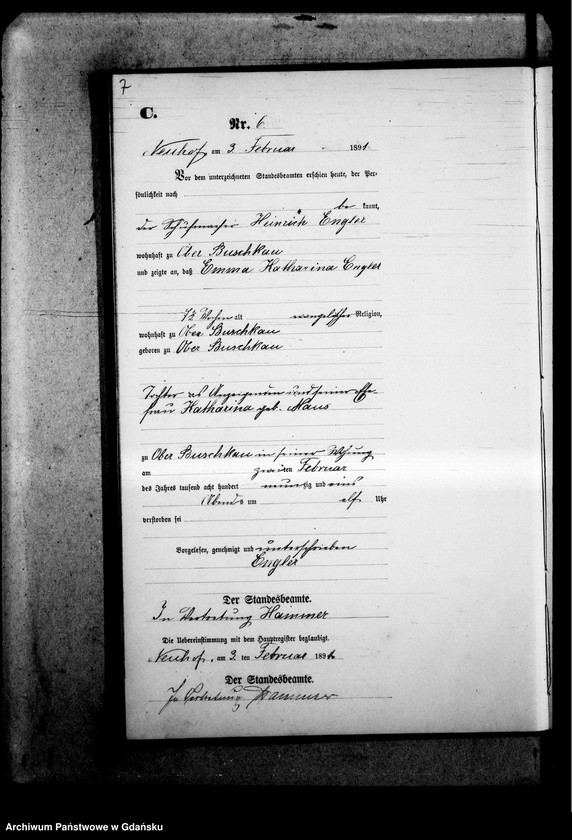 7
C.
Nr. 6
Neuhof am 3. Februar 1891
Vor dem unterzeichneten Standesbeamten erschien heute, der Per-
sönlichkeit nach
be kannt,
der Schuhmacher Heinrich Engler
wohnhaft zu Ober Buschkau
und zeigte an, daß Emma Katharina Engler
7½ Wochen alt evangelischer Religion,
wohnhaft zu Ober Buschkau
geboren zu Ober Buschkau
Tochter des Anzeigenden und seiner Ehe-
frau Katharina geb. Maus
zu Ober Buschkau in seiner Wohnung
am zweiten Februar
des Jahres tausend acht hundert neunzig und eins
Abends um elf Uhr
verstorben sei
Vorgelesen, genehmigt und unterschrieben
Engler
Der Standesbeamte.
In Vertretung Hammer
Die Uebereinstimmung mit dem Hauptregister beglaubigt.
Neuhof, am 3. ten Februar 1891
Der Standesbeamte.
In Vertretung Hammer
Archiwum Państwowe w Gdańsku